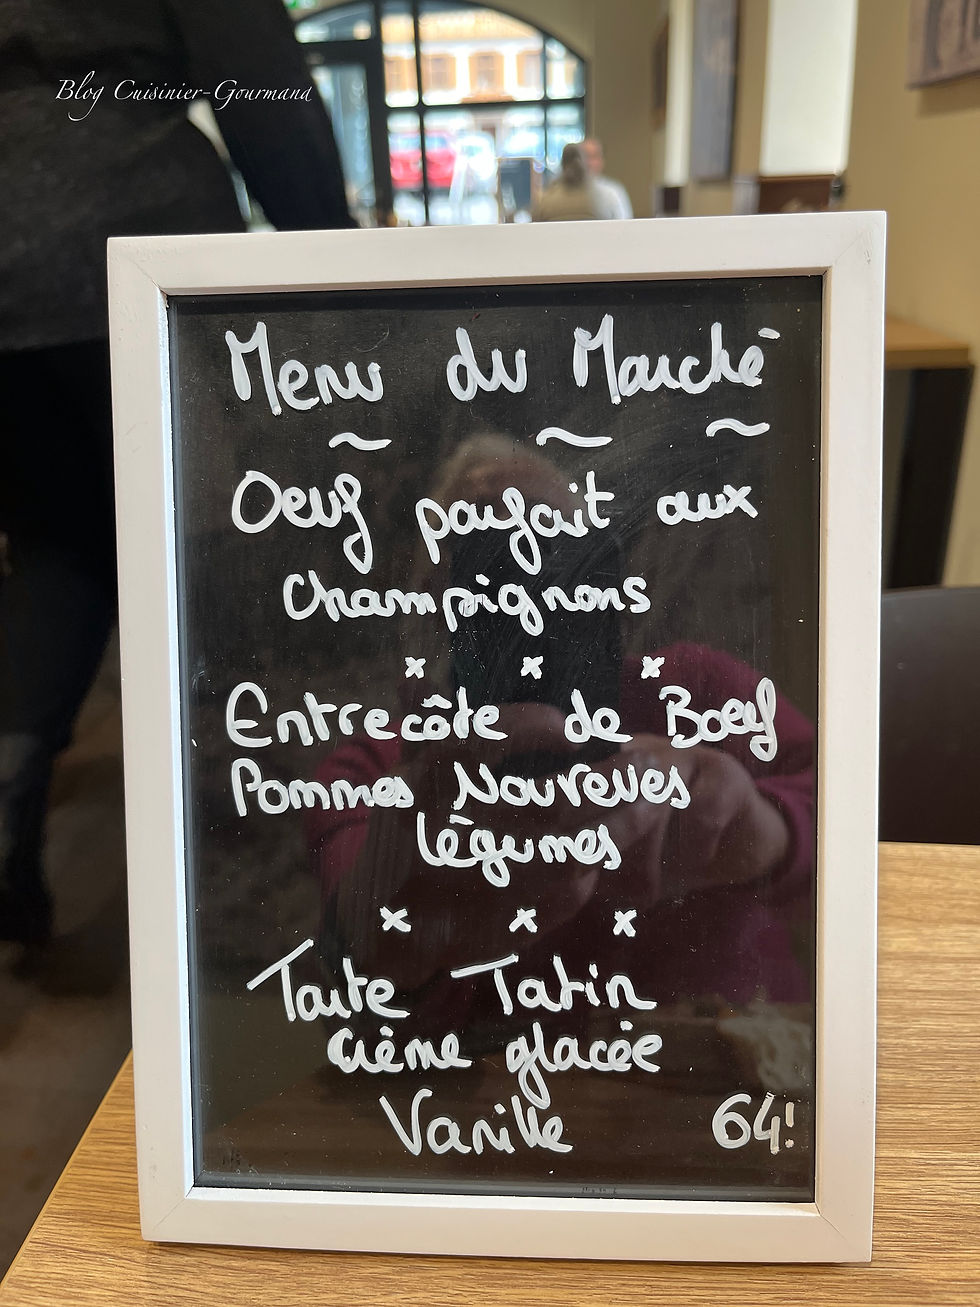 Blog Cuisinier-Gourmand
Menu du Marché
Oeuf parfait aux
Champignons
x x x
Entrecôte de Boeuf
Pommes Nouvelles
Légumes
x x x
Tarte Tatin
Crème glacée
Vanille 64!